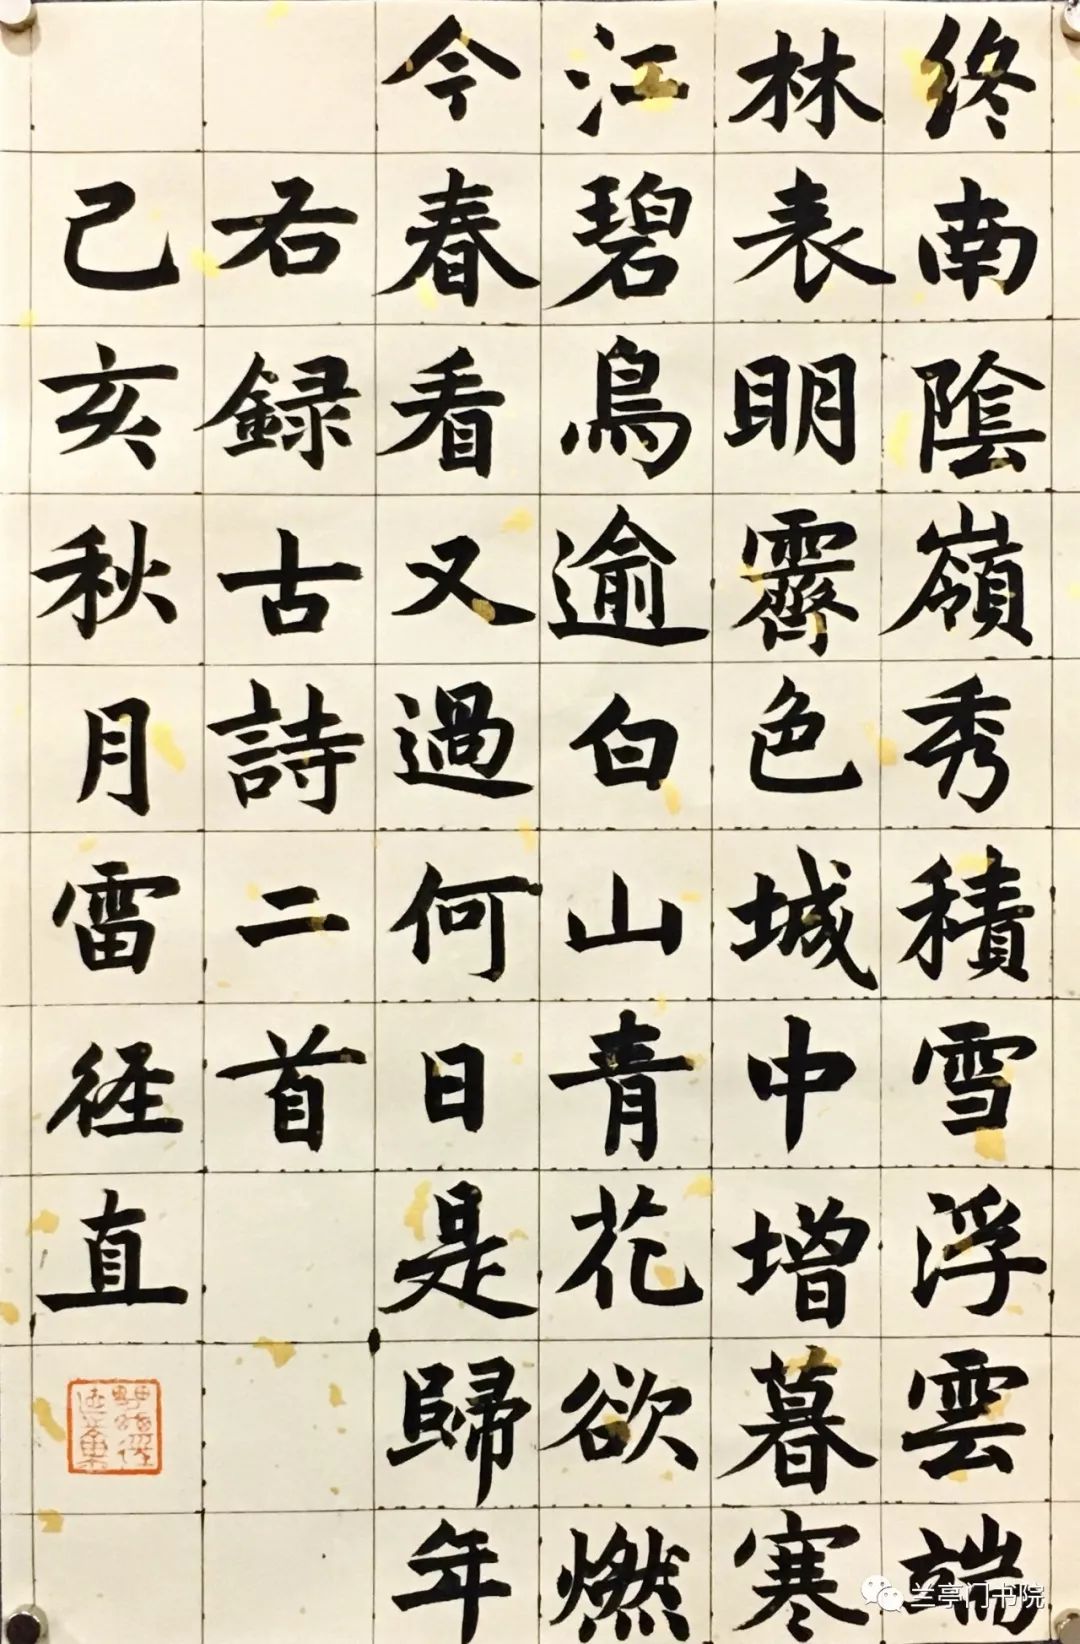 终南陰嶺秀積雪浮雲端
林表明霽色城中增暮寒
江碧鳥逾白山青花欲燃
今春看又過何日是歸年
右録古詩二首
己亥秋月雷径直
兰亭门书院